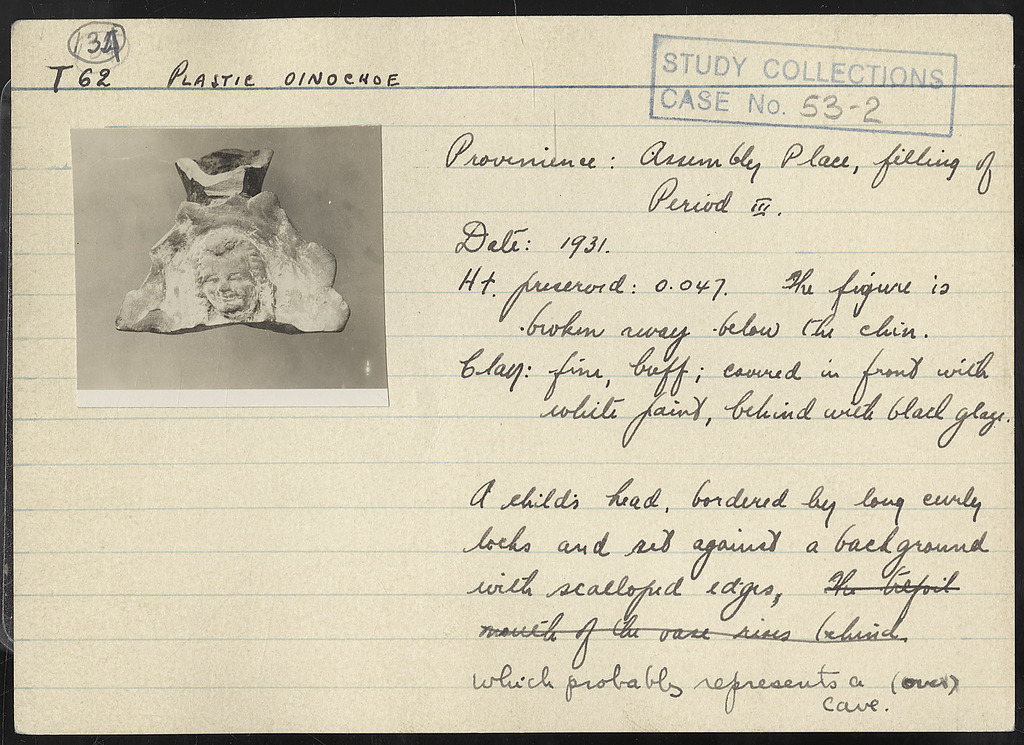 131
T 62 PLASTIC OINOCHOE
STUDY COLLECTIONS
CASE No. 53-2
Provenience: Assembly Place, filling of
Period III.
Date: 1931.
Ht. preserved: 0.047. The figure is
broken away below the chin.
Clay: fine, buff; covered in front with
white paint, behind with black glaze.
A child's head, bordered by long curly
locks and set against a background
with scalloped edges, The trefoil
mouth of the vase rises behind.
which probably represents a (over)
cave.